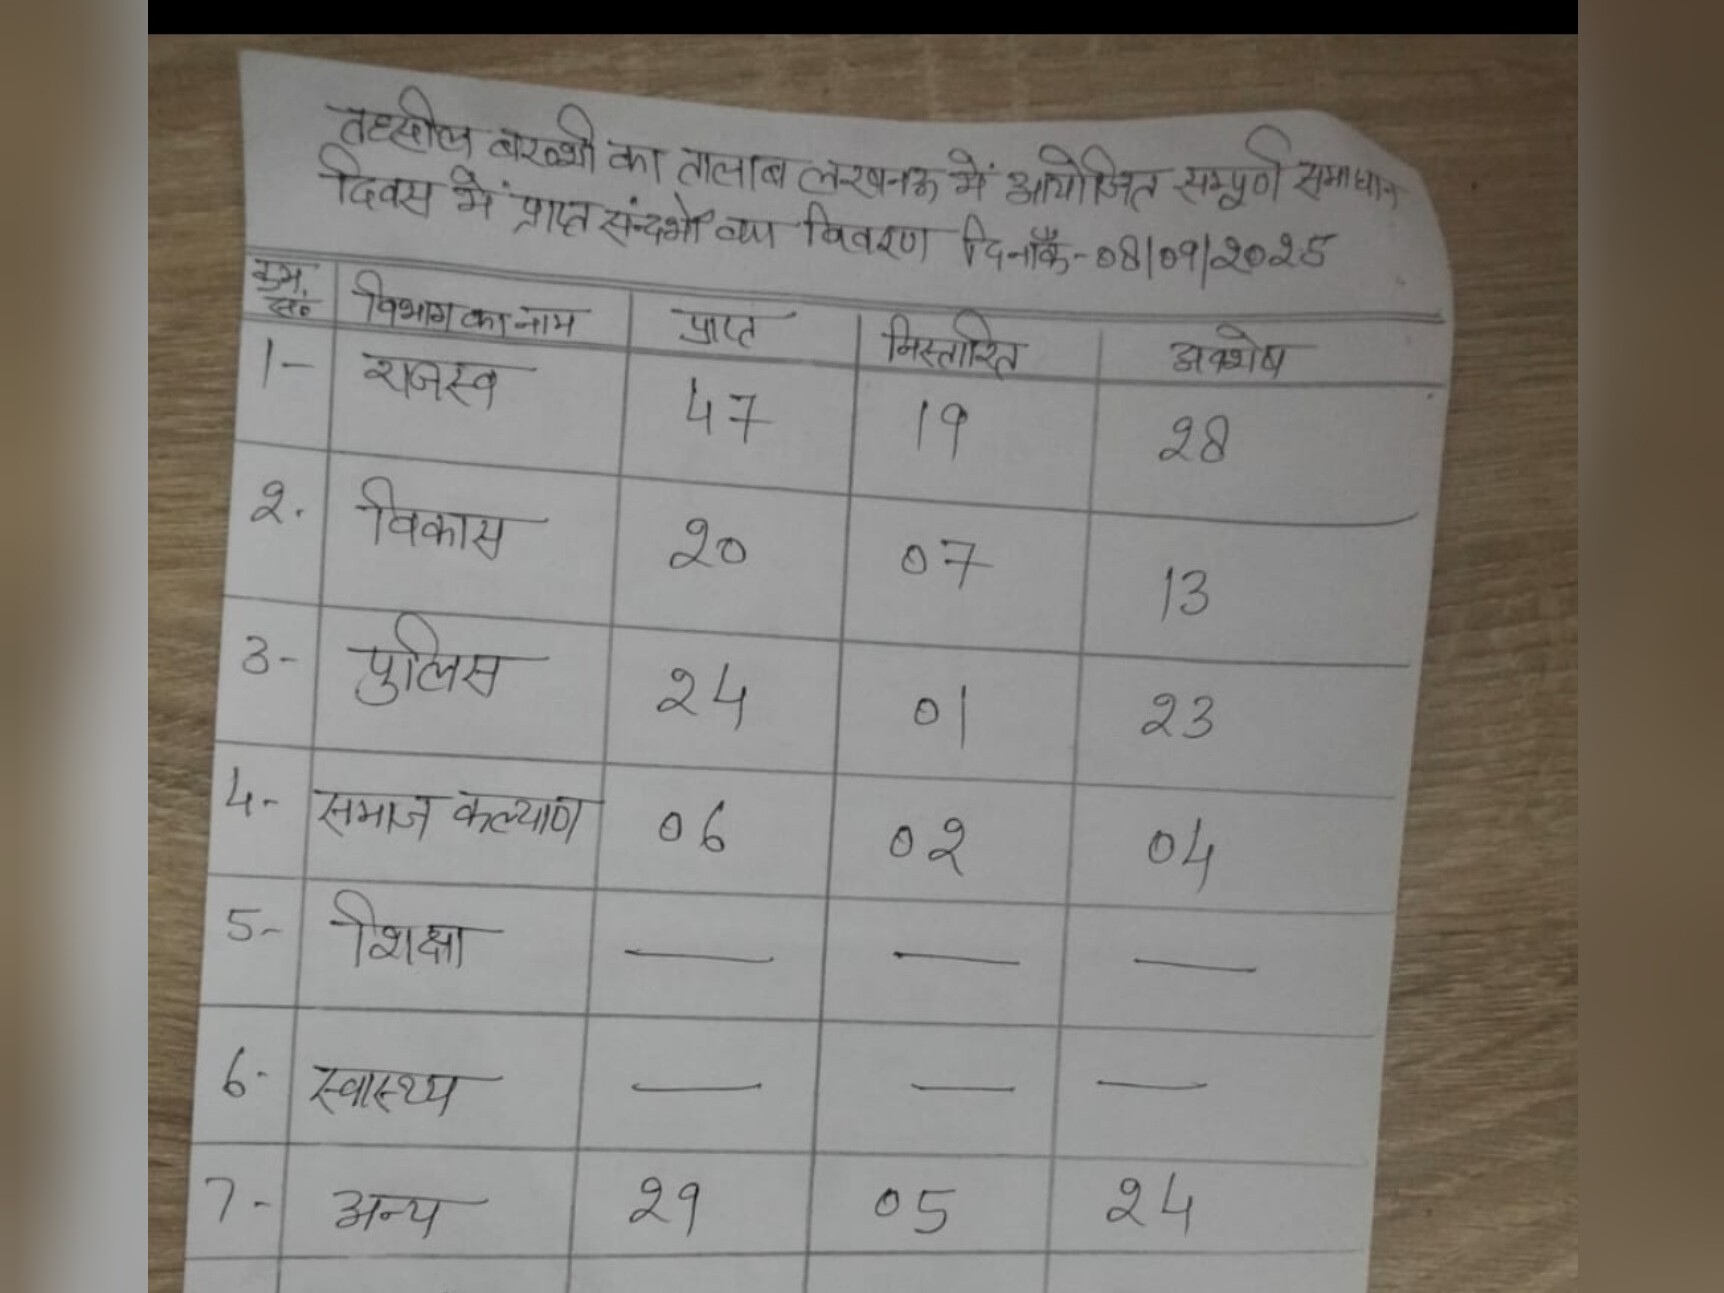 तहसील बख्शी का तालाब लखनऊ में आयोजित सम्पूर्ण समाधान
दिवस में प्राप्त संदर्भो का विवरण दिनाँक-08/09/2025
क्रम. सं० विभाग का नाम प्राप्त निस्तारित अवशेष
1- राजस्व 47 19 28
2. विकास 20 07 13
3- पुलिस 24 01 23
4- समाज कल्याण 06 02 04
5- शिक्षा — — —
6- स्वास्थ्य — — —
7- अन्य 29 05 24